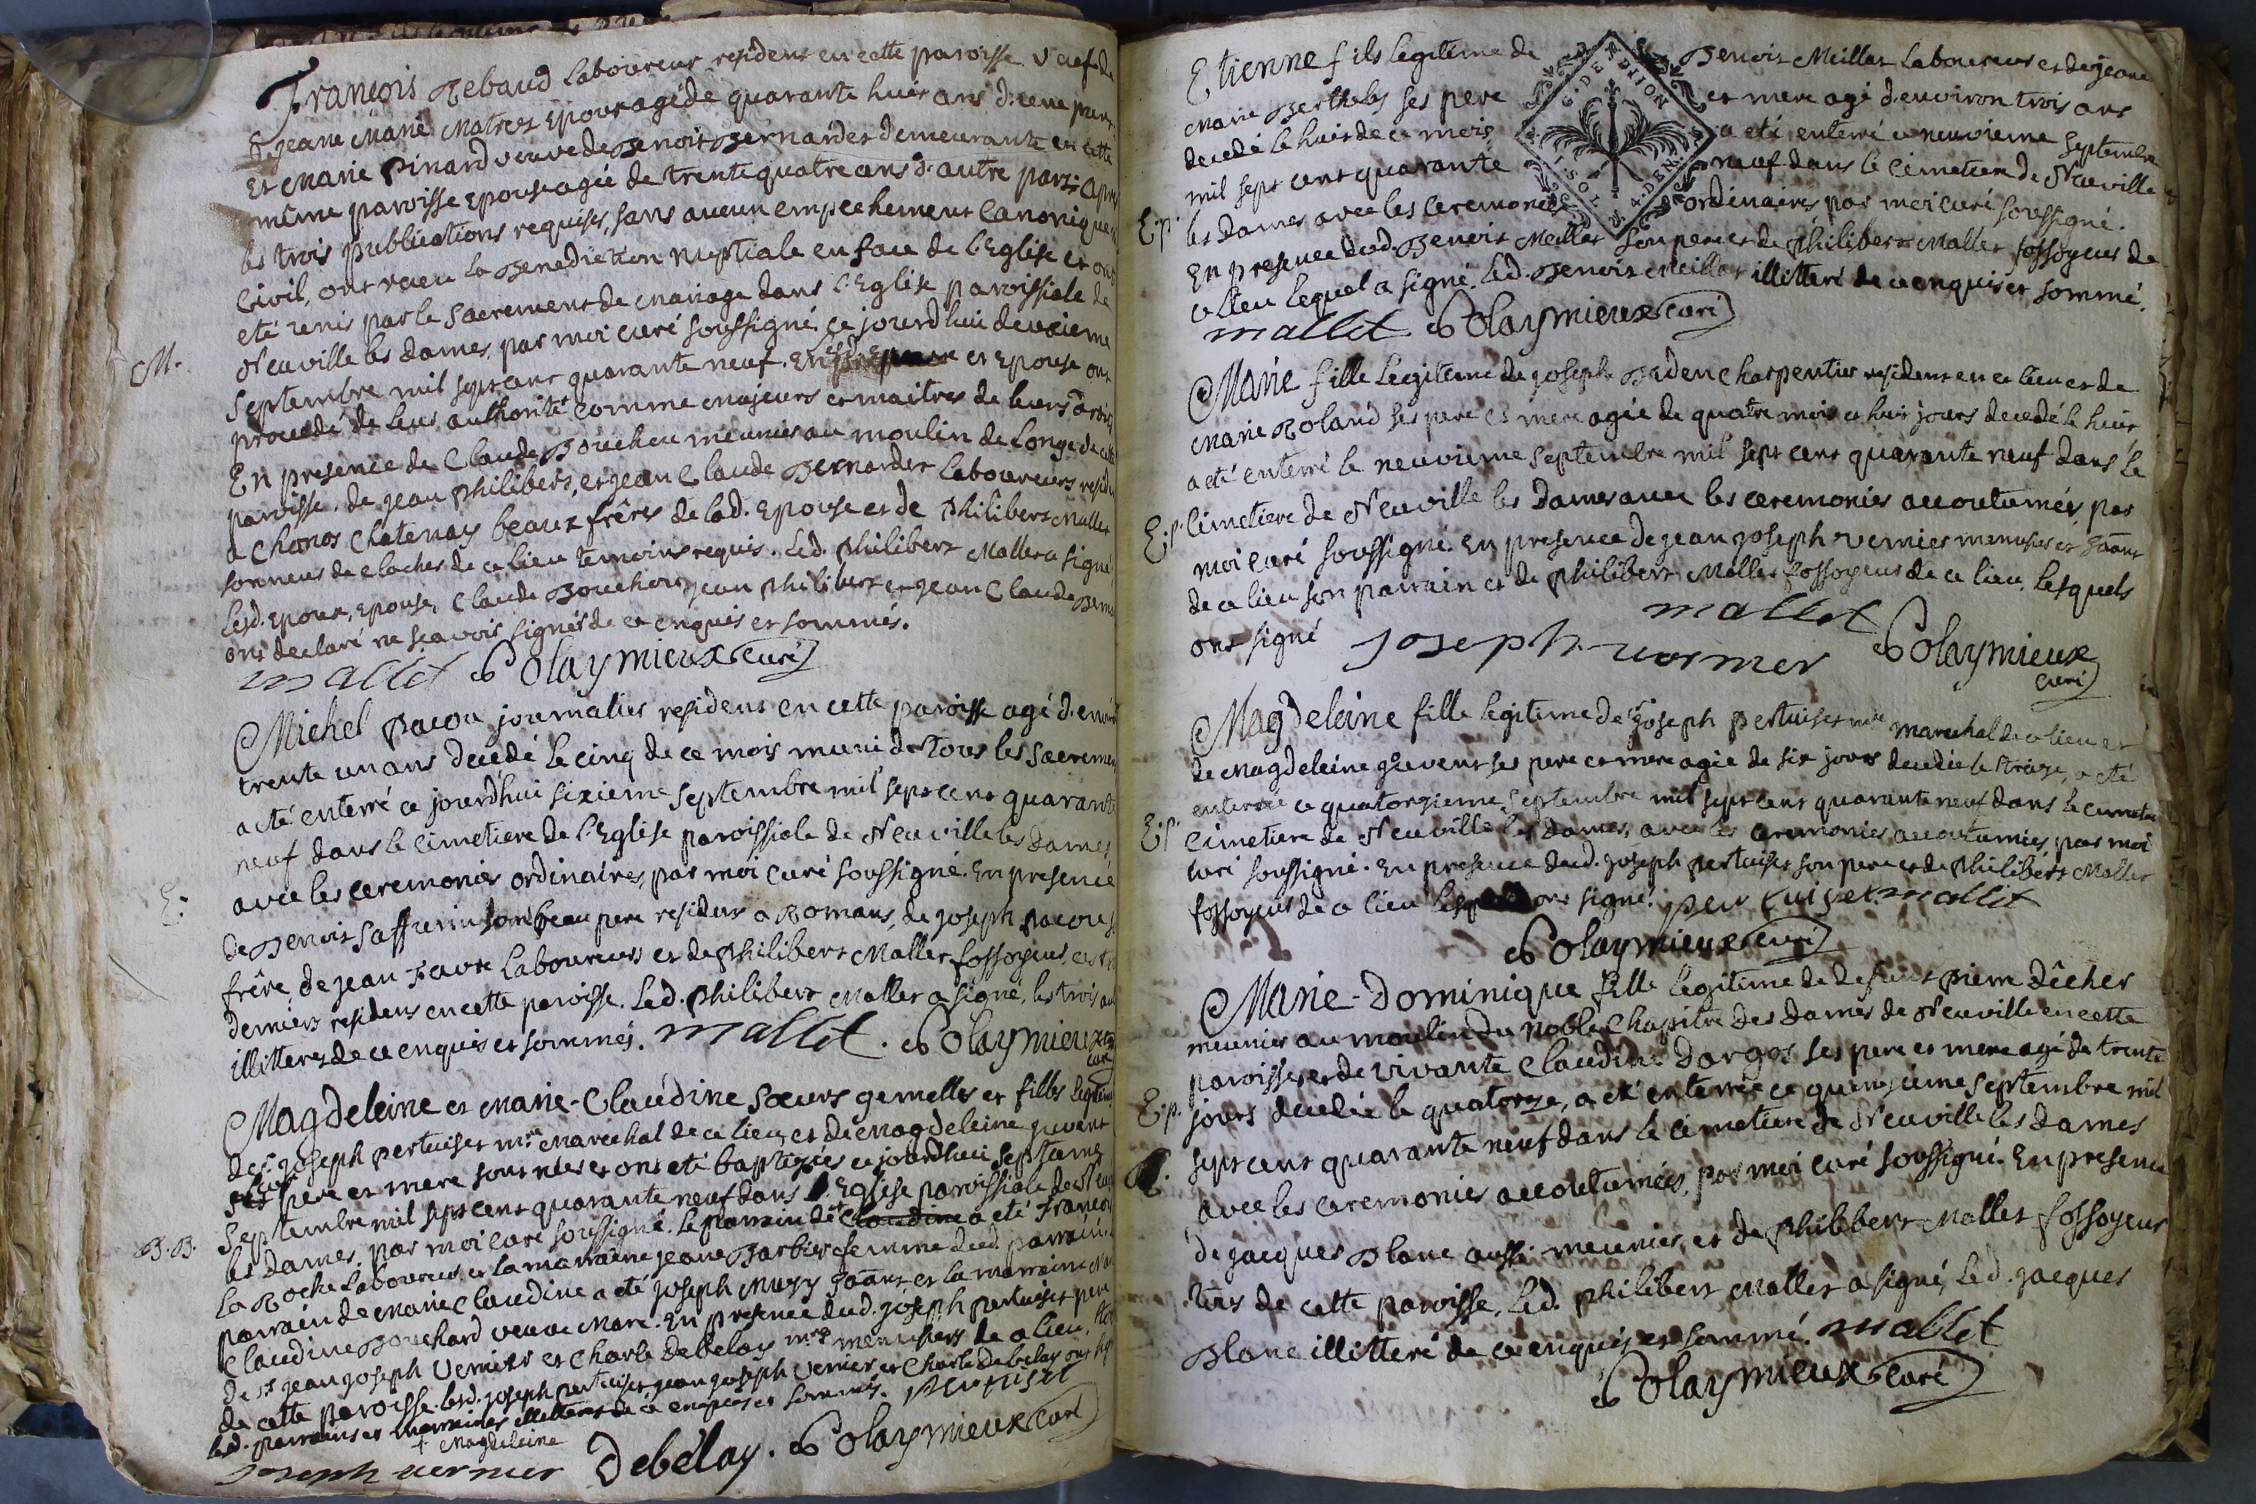 François Rebaud Laboureur resident en cette paroisse veuf de
Jeane Marie Matrot Epoux agé de quarante huit ans d'une part
Et Marie Pinard veuve de Benoit Bernardet demeurante en cette
même paroisse Epouse agée de trente quatre ans d'autre part: apres
les trois publications requises, sans aucun empechement Canonique
Civil, ont recu la Benediction Nuptiale en face de l'Eglise et ont
eté unis par le Sacrement de mariage dans l'Eglise paroissiale de
M. Neuville les Dames, par moi curé soussigné ce jourdhui deuxieme
Septembre mil sept cent quarante neuf. et Epouse ont
procedé de leur authorité comme majeurs et maitres de leurs droits
En presence de Claude Bouchou meunier au moulin de Longe de cette
paroisse, de jean philibert, et jean Claude Bernardet Laboureurs resid
a Chanos Chatenay beaux frêres de lad. Epouse et de Philibert Mallet
sonneur de cloches de ce lieu temoins requis. Led. Philibert Mallet a signé
Lesd. Epoux, Epouse, Claude Bouchou, jean philibert et jean Claude Bern
ont declaré ne sçavoir signer de ce enquis et sommés.
mallet Polaymieux curé
Michel Pacou journalier resident en cette paroisse agé d'envir
trente un ans decedé le cinq de ce mois muni de tous les Sacremen
a eté enterré ce jourd'hui sixieme Septembre mil sept cent quarant
neuf dans le Cimetiere de l'Eglise paroissiale de Neuville les Dames
E: avec les ceremonies ordinaires, par moi curé soussigné. En presence
de Benoit Saffurin son beau pere resident a Romans, de joseph pacou s
frêre, de jean Favre Laboureurs et de Philibert Mallet fossoyeur, ces t
derniers residens en cette paroisse. Led. Philibert Mallet a signé, les trois au
illitterés de ce enquis et sommés. mallet. Polaymieux
curé
Magdeleine et Marie-Claudine Sœurs gemelles et filles legitim
de Sr joseph pertuiset mre Marechal de ce lieu et de Magdeleine guvent
pere et mere sont nées et ont eté baptisées ce jourdhui septieme
Septembre mil sept cent quarante neuf dans l'Eglise paroissiale de Neuv
B.B. les Dames, par moi curé soussigné. Le parrain de + Claudine a eté Francois
La Roche Laboureur, et la marraine jeane Barbier femme dud. parrain.
parrain de Marie Claudine a eté joseph Mugy et la marraine
Claudine Bouchard veuve More. En presence dud. joseph pertuiset pere
de Sr jean joseph Vernier et Charle Debelay mres menuisiers de ce lieu,
de cette paroisse. Lesd. joseph pertuiset jean joseph Vernier et Charle Debelay ont sign
led. parrains et marraines illitterés de ce enquis et sommés. pertuiset
+ Magdeleine
joseph vernier Debélay. Polaymieux curé
Etienne fils legitime de Benoit Meillat Laboureur et de jeane
Marie Berthelet ses pere et mere agé d'environ trois ans
decedé le huit de ce mois a eté enterré ce neuvieme Septembre
mil sept cent quarante neuf dans le Cimetiere de Neuville
E.p. les Dames avec les Ceremonies ordinaires par moi curé soussigné.
En presence dud. Benoit Meillat son pere et de Philibert Mallet fossoyeur de
ce lieu lequel a signé. Led. Benoit Meillat illitteré de ce enquis et sommé.
G. DE DIJON
1. SOL 4. DEN.
mallet Polaymieux curé
Marie fille Legitime de joseph Baden Charpentier resident en ce lieu et de
Marie Roland ses pere et mere agée de quatre mois et huit jours decedé le huit
a eté enterré le neuvieme Septembre mil sept cent quarante neuf dans le
E.p. Cimetiere de Neuville les Dames avec les ceremonies accoutumées, par
moi curé soussigné. En presence de jean joseph vernier menusier et
de ce lieu son parrain et de Philibert Mallet fossoyeur de ce lieu, lesquels
ont signé mallet
joseph vernier Polaymieux
curé
Magdeleine fille legitime de Sr joseph pertuiset mre marechal de ce lieu et
de Magdeleine guvent ses pere et mere agée de six jours decedée le treize, a eté
enterrée ce quatorzieme Septembre mil sept cent quarante neuf dans le cimetie
E.p. Cimetiere de Neuville les Dames, avec les ceremonies accoutumées, par moi
curé soussigné. En presence dud. joseph pertuiset son pere et de Philibert Mallet
fossoyeur de ce lieu ont signé. pertuiset mallet
Polaymieux curé
Marie-Dominique fille legitime de defunt pierre Dêcher
meunier au moulin du Noble Chapitre des Dames de Neuville en cette
paroisse, et de vivante Claudine Dargos ses pere et mere agé de trente
E.p. jours decedée le quatorze, a eté enterrée ce quinzieme Septembre mil
sept cent quarante neuf dans le Cimetiere de Neuville les Dames
avec les ceremonies accoutumées, par moi curé soussigné. En presence
de jacques Blanc aussi meunier, et de Philibert Mallet fossoyeur
tous de cette paroisse, Led. Philibert Mallet a signé, Led. jacques
Blanc illitteré de ce enquis et sommé. mallet
Polaymieux curé